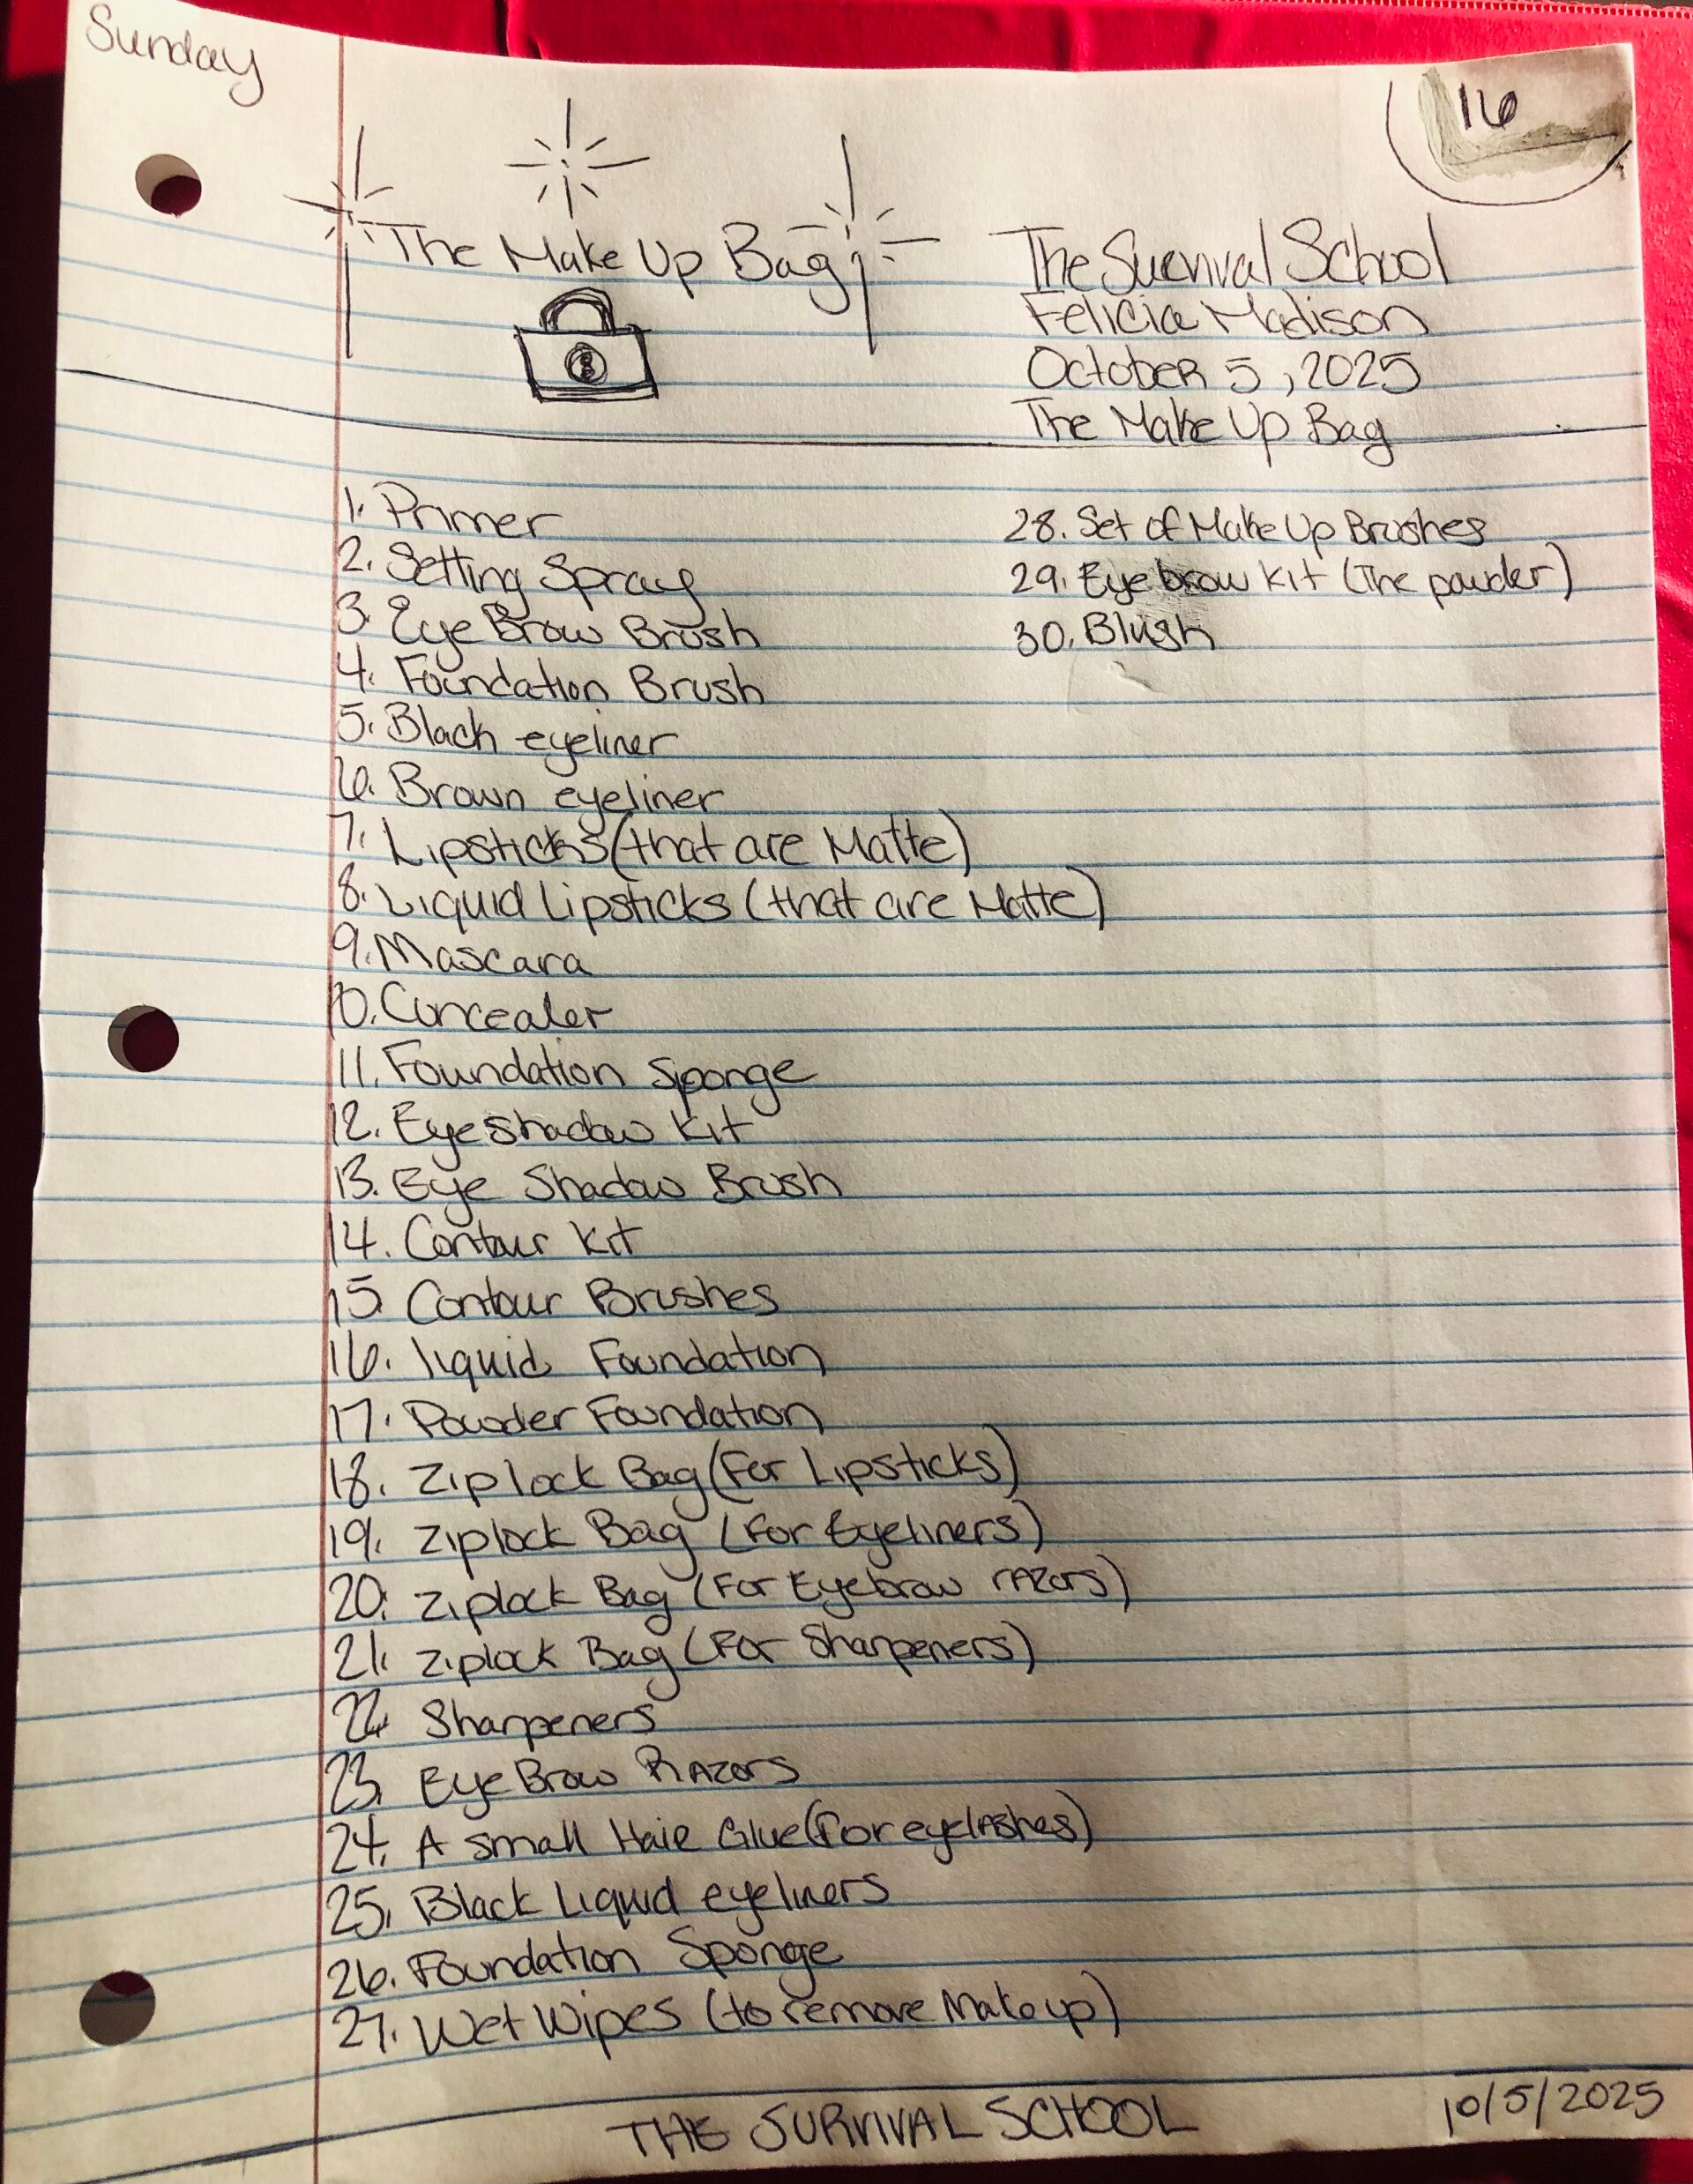 Sunday
16
The Make Up Bag
The Survival School
Felicia Madison
October 5, 2025
The Make Up Bag
1. Primer
2. Setting Spray
3. Eye Brow Brush
4. Foundation Brush
5. Black eyeliner
6. Brown eyeliner
7. Lipsticks (that are Matte)
8. Liquid Lipsticks (that are Matte)
9. Mascara
10. Concealer
11. Foundation Sponge
12. Eyeshadow Kit
13. Eye Shadow Brush
14. Contour Kit
15. Contour Brushes
16. liquid Foundation
17. Powder Foundation
18. Ziplock Bag (For Lipsticks)
19. Ziplock Bag (For Eyeliners)
20. Ziplock Bag (For Eyebrow razors)
21. Ziplock Bag (For Sharpeners)
22. Sharpeners
23. Eye Brow Razors
24. A small Hair Glue (For eyelashes)
25. Black Liquid eyeliners
26. Foundation Sponge
27. Wet Wipes (to remove Makeup)
28. Set of Make Up Brushes
29. Eyebrow Kit (The powder)
30. Blush
THE SURVIVAL SCHOOL
10/5/2025